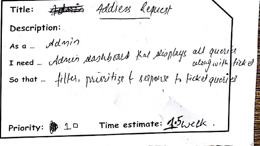 Title: Admin Address Request
Description:
As a .. Admin
I need .. Admin dashboard that displays all queries
along with ticket
So that .. filter, prioritize & response to ticket queries
Priority: 10 Time estimate: 1.5 week.